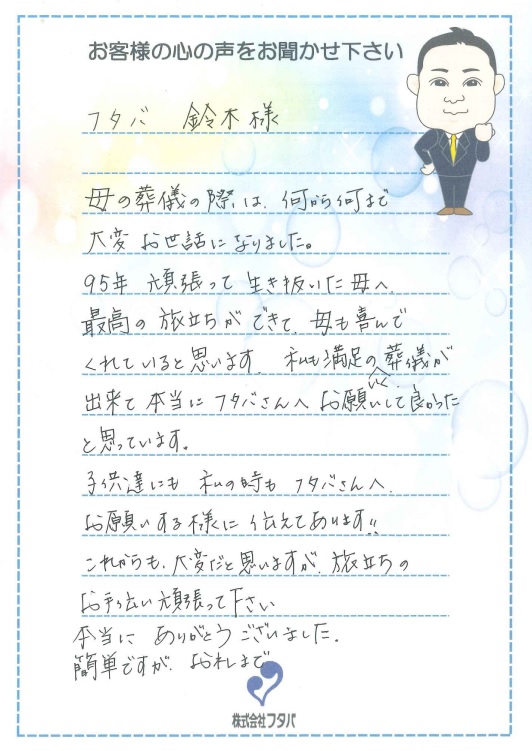 お客様の心の声をお聞かせ下さい
フタバ 鈴木様
母の葬儀の際は、何から何まで
大変お世話になりました。
95年 頑張って生き抜いた母へ
最高の旅立ちができて、母も喜んで
くれていると思います。私も満足のいく葬儀が
出来て本当にフタバさんへお願いして良かった
と思っています。
子供達にも 私の時も フタバさんへ
お願いする様に伝えてあります!!
これからも、大変だと思いますが、旅立ちの
お手伝い頑張って下さい
本当に ありがとうございました。
簡単ですが、お礼まで
株式会社フタバ